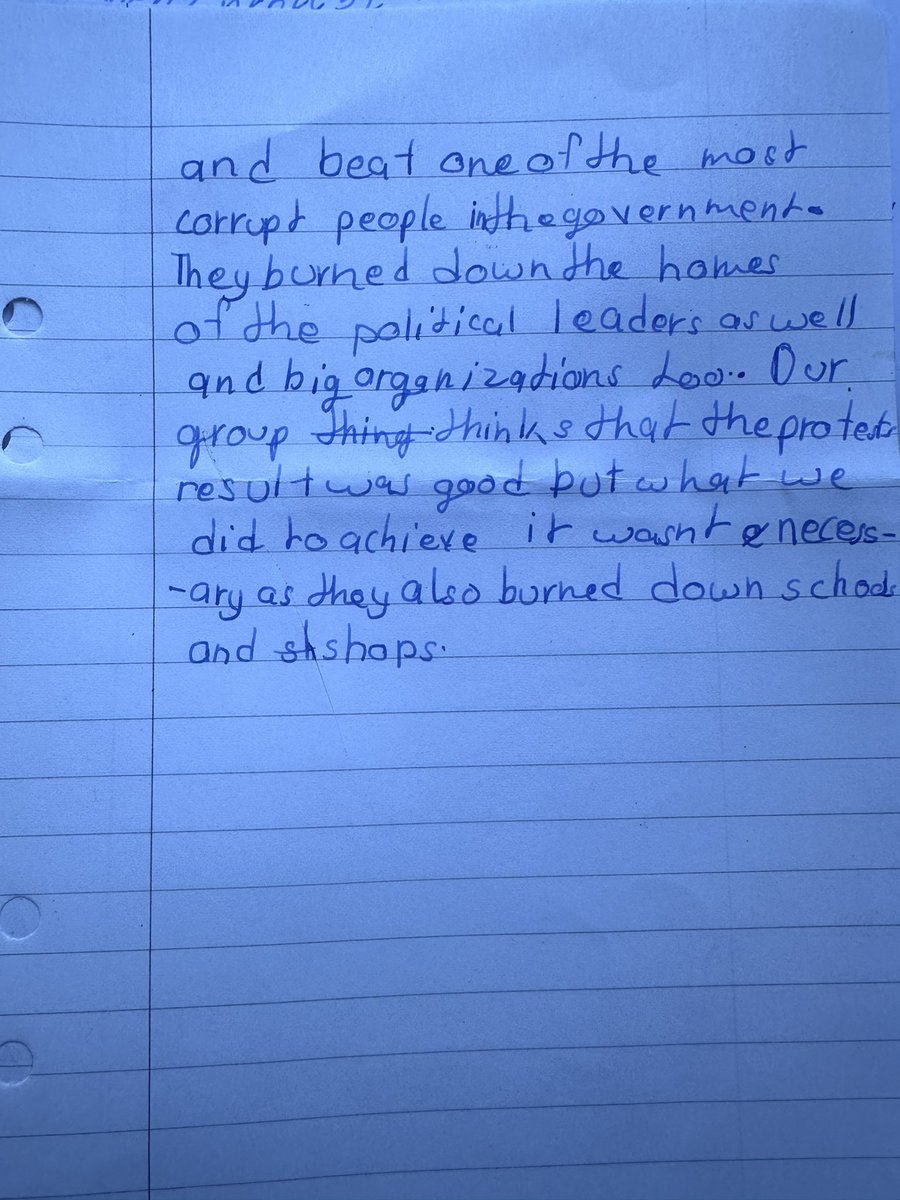 and beat one of the most
corrupt people in the government.
They burned down the homes
of the political leaders as well
and big organizations too.. Our
group thing thinks that the protests
result was good but what we
did to achieve it wasnt necess-
-ary as they also burned down schools
and sh shops.